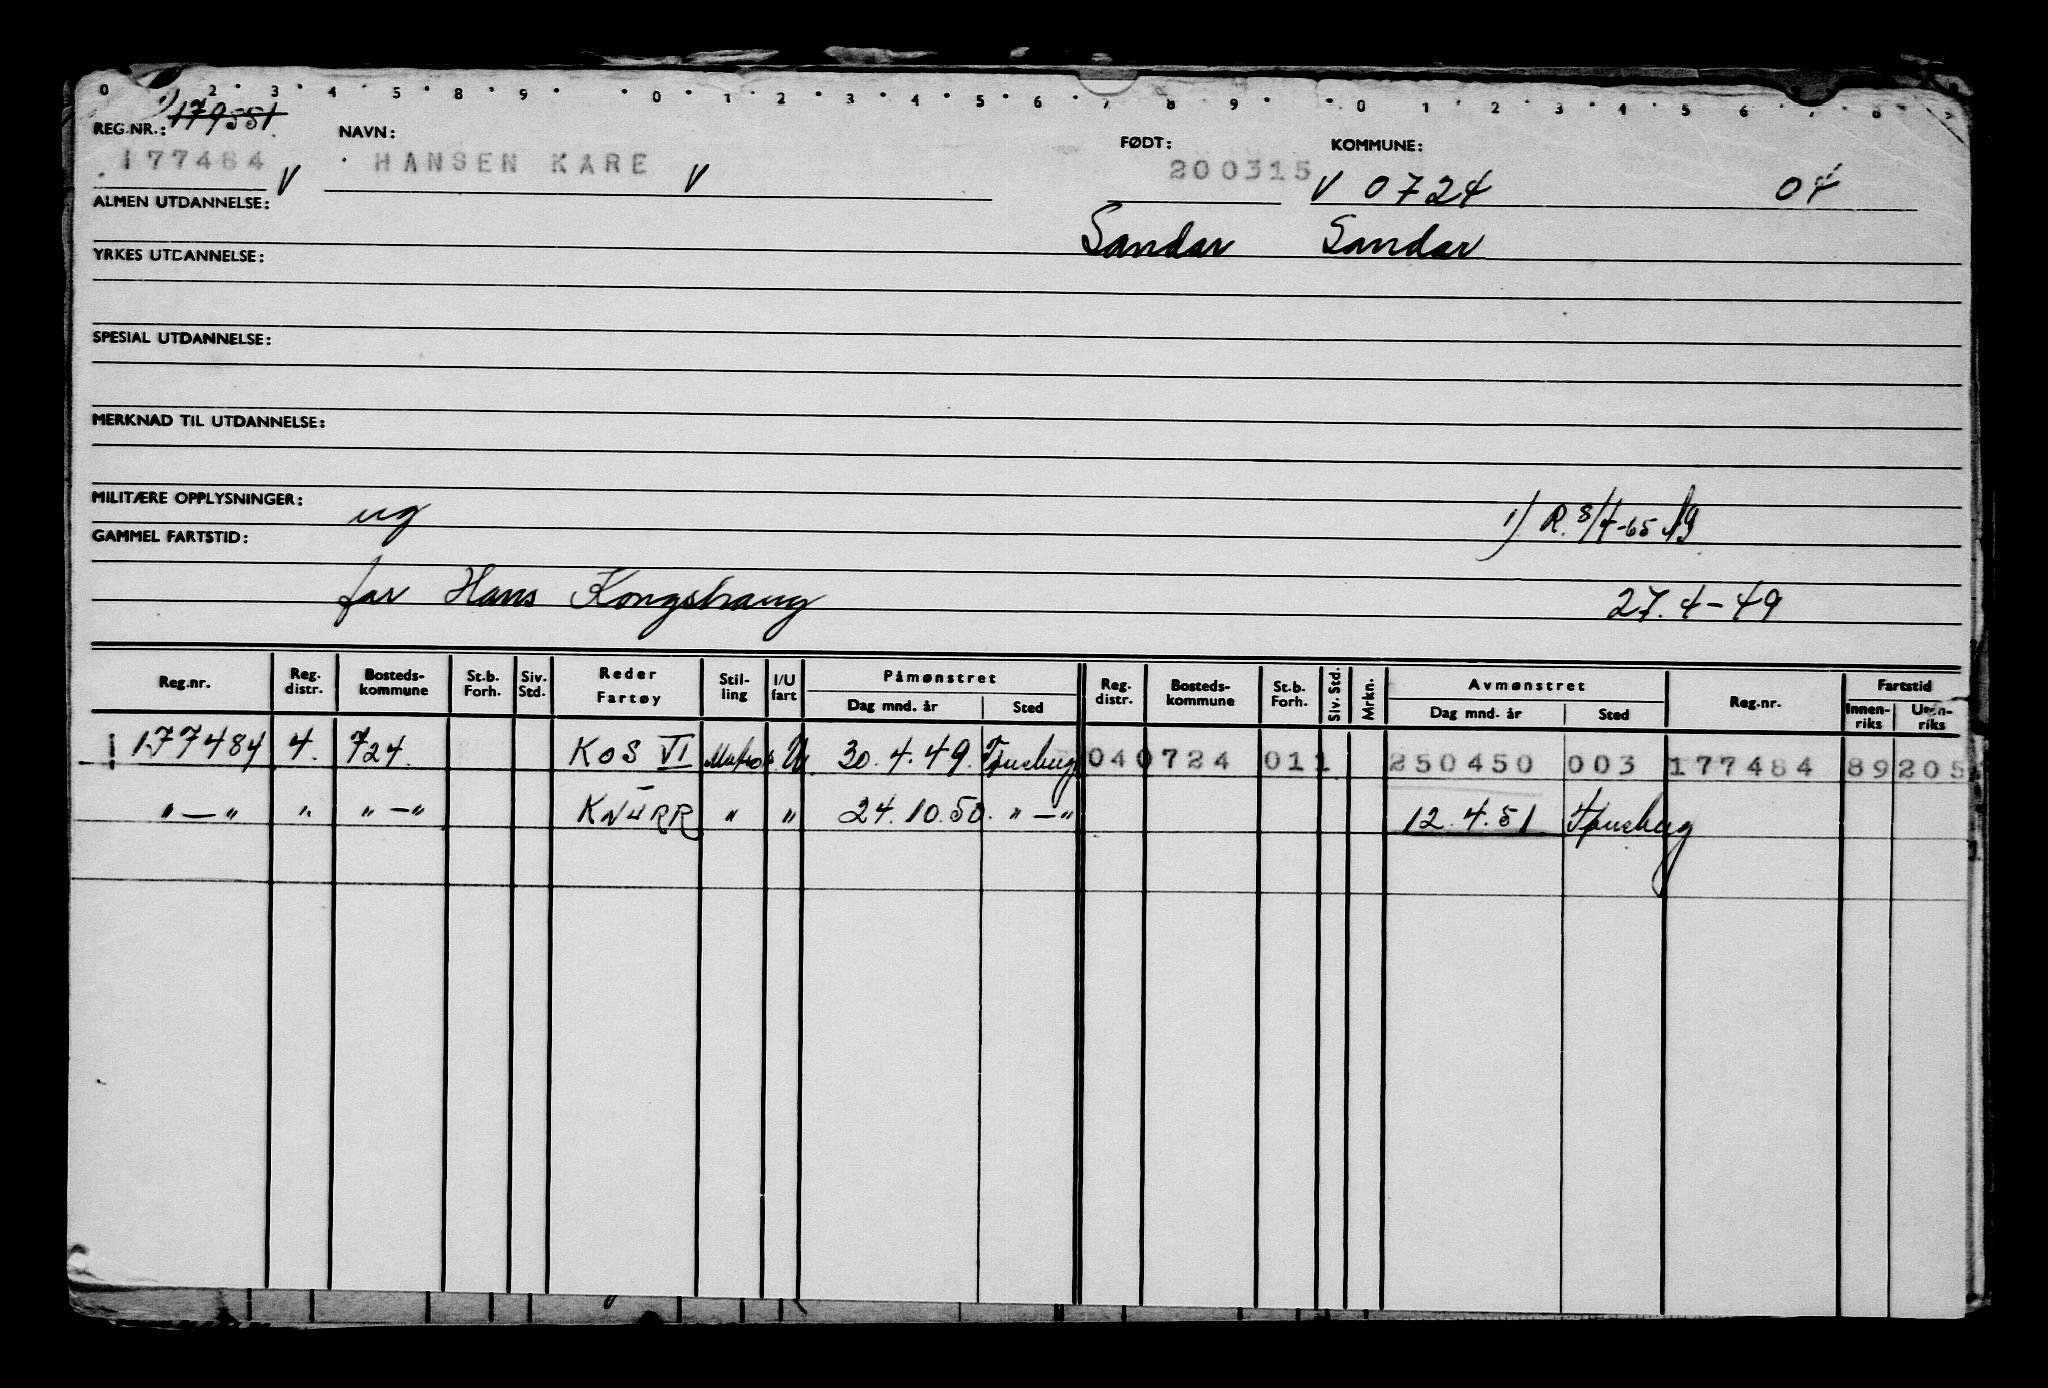 0 2 3 4 5 8 9 0 1 2 3 4 5 6 7 8 9 0 1 2 3 4 5 6 7 8
1) 179551
REG.NR.: NAVN: FØDT: KOMMUNE:
177484 V HANSEN KARE V 200315 V 0724 04
ALMEN UTDANNELSE:
Sandar Sandar
YRKES UTDANNELSE:
SPESIAL UTDANNELSE:
MERKNAD TIL UTDANNELSE:
MILITÆRE OPPLYSNINGER: ug 1) R. 8/4-65
GAMMEL FARTSTID:
far Hans Kongshaug 27.4-49
Reg.nr. Reg. distr. Bosteds-kommune St.b. Forh. Siv. Std. Reder Fartøy Stil-ling I/U fart Påmønstret Dag mnd. år Sted Reg. distr. Bosteds-kommune St.b. Forh. Siv. Std. Mrkn. Avmønstret Dag mnd. år Sted Reg.nr. Fartstid Innen-riks Uten-riks
177484 4. 724. KOS VI Matros U. 30.4.49. Tønsberg 040724 011 250450 003 177484 89 205
"—" " "—" KNURR " " 24.10.50. "—" 12.4.51 Tønsberg